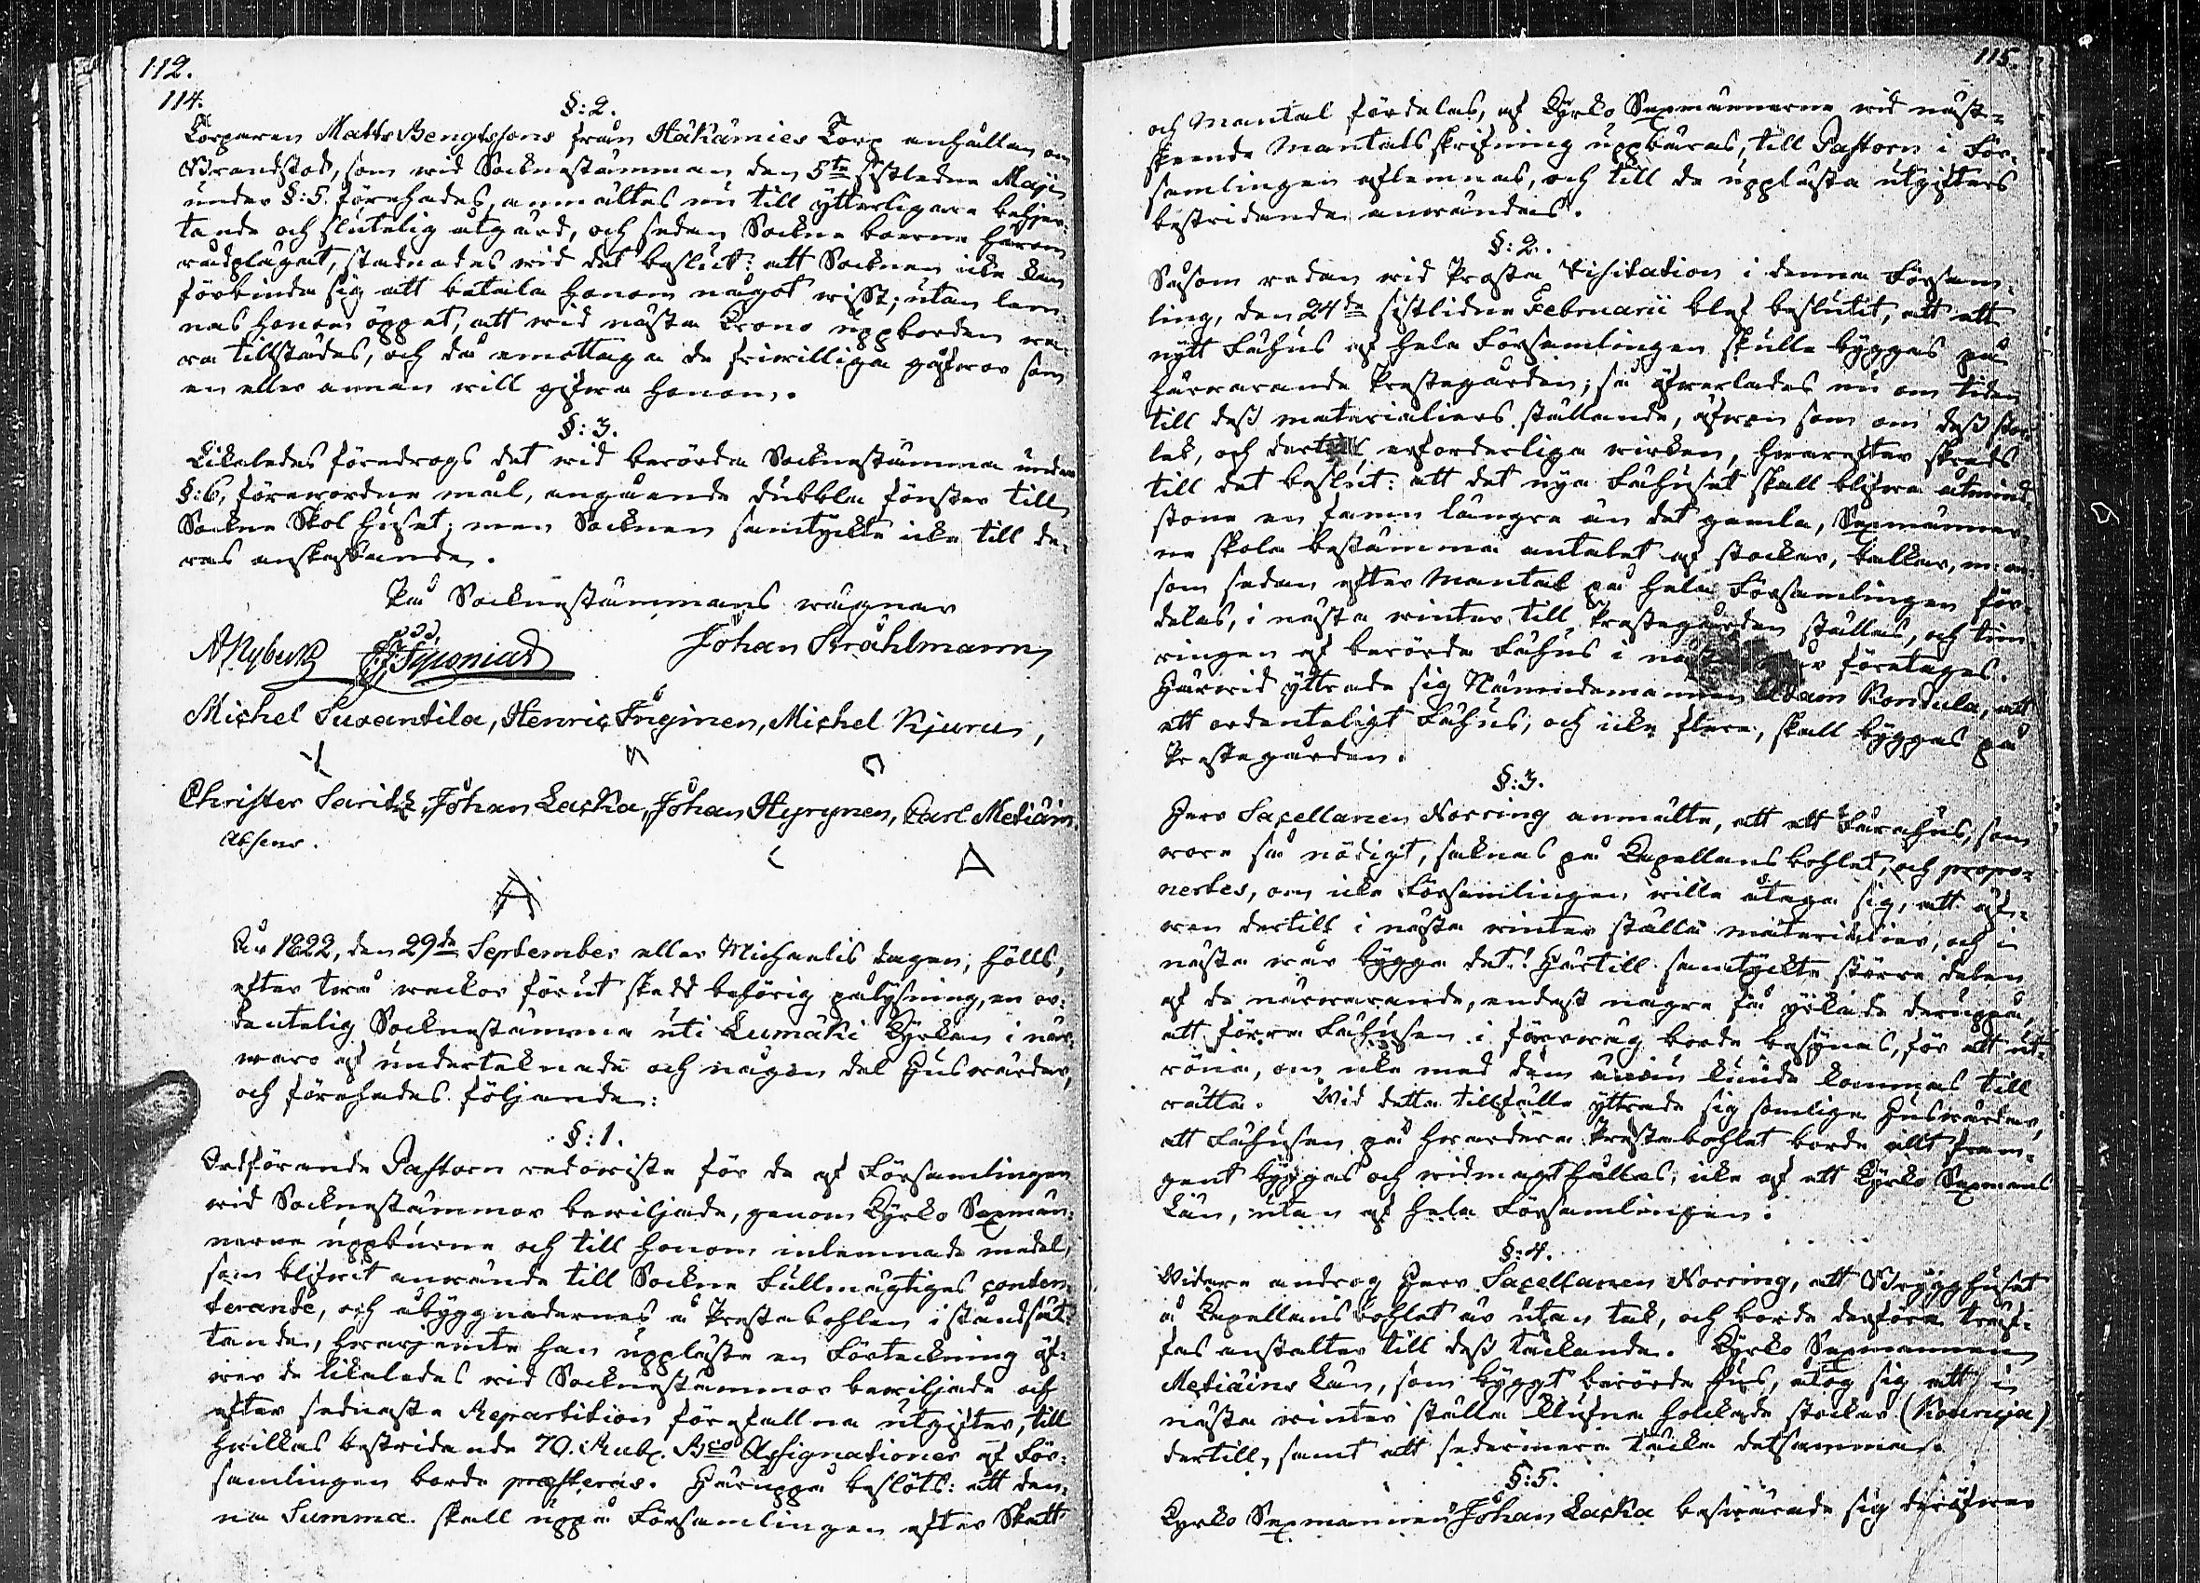 112.
114.
§: 2.
Torparen Matts Bengtssons från Hähämies Torp anhållan om
Brandstod, som wid Sockne stämman den 5te sistledne Maji
under §: 5. förehades, anmältes nu till ytterligare behjer-
tande och slutelig åtgärd, och sedan Sockne boerne härom
rådplägat, stadnades wid det beslut: att Socknen icke kan
förbinda sig att betala honom något wisst; utan lem-
nas honom öppet, att wid nästa Krono uppborden wa-
ra tillstädes, och då emottaga de friwilliga gåfwor som
en eller annan will gifwa honom.
§: 3.
Likaledes föredrogs det wid berörda Sockne stämma under
§: 6, förewordne mål, angående dubbla fönster till
Sockne Skol huset; men Socknen samtyckte icke till de-
ras anskaffande.
På Sockne stämmans wägnar
A Nyberg J. J. Johan Stråhlmann
Michel Suxantila, Henric Inginen, Michel Kjuru,
Christer Saritz, Johan Laska, Johan Hyrynen, Carl Metiäin.
Absens.
År 1822, den 29de September eller Michaelis dagen, hölls,
efter twå weckor förut skedd behörig pålysning, en or-
dentelig Sockne stämma uti Lumäki Kyrkan i när-
waro af undertecknade och någon del Huswärdar,
och förehades följande:
§: 1.
Ordförande Pastorn redowiste för de af Församlingen
wid Sockne stämmor bewiljade, genom Kyrko Sexmän-
nerne uppburne och till honom inlemnade medel,
som blifwit använde till Sockne Fullmägtiges conten-
terande, och åbyggnadernes å Prestebohlen i ståndsät-
tande, hwarjemte han uppläste en Förteckning öf-
wer de likaledes wid Sockne stämmor bewiljade och
efter sednaste Repartition förefallne utgifter, till
hwilkas bestridande 70. Rub. Bco Assignationer af För-
samlingen borde præsteras. Häruppå beslöts: att den-
na Summa skall uppå Församlingen efter Skatt
115.
och Mantal fördelas, af Kyrko Sexmännerne wid näst-
skeende Mantals skrifning uppbäras, till Pastorn i För-
samlingen aflemnas, och till de upplästa utgifters
bestridande anwändas.
§: 2.
Såsom redan wid Prosta Visitation i denna Försam-
ling, den 24de sistlidne Februarii blef beslutit, att ett
nytt Fähus af hela Församlingen skulle byggas på
härwarande Prestegården; så öfwerlades nu om tiden
till dess materialiers ställande, äfwen som om dess stor-
lek, och dertill erforderliga wirken, hwarefter skreds
till det beslut: att det nya Fähuset skall blifwa åtmind-
stone en famn längre än det gamla, Sexmänner-
ne skola bestämma antalet af stockar, balkar, m: m:
som sedan efter Mantal på hela Församlingen för-
delas, i nästa winter till Prestegården ställas, och tim-
ringen af berörda Fähus i nästa wår företages.
Härwid yttrade sig Nämndemannen Adam Kondula, att
ett ordenteligt Fähus, och icke flere, skall byggas på
Prestegården.
§: 3.
Herr Sacellanen Norring anmälte, att ett Farehus, som
wore så nödigt, saknas på Kapellans bohlet, och propo-
nerbes, om icke Församlingen wille åtaga sig, att äf-
wen dertill i nästa winter ställa materialier, och i
nästa wår bygga det! Härtill samtyckte större delen
af de närwarande, endast några få yrkade deruppå,
att förra Fähusen i förewäg borde besynas, för att ut-
röna, om icke med dem ännu kunde kommas till
rätta. Wid detta tillfälle yttrade sig somlige Huswärdar,
att Fähusen på hwardera Prestabohlet borde allt fram-
gent byggas och widmagthållas, icke af ett Kyrko Sexmans
Län, utan af hela Församlingen.
§: 4.
Widare androg Herr Sacellanen Norring, att Brygghuset
å Kapellans bohlet är utan tak, och borde derföre träf-
fas anstalter till dess täckande. Kyrko Sexmannen
Metiäins Län, som byggt berörde hus, åtog sig att i
nästa winter ställa klufna holkade stockar (Kouruja)
dertill, samt att sedermera täcka detsamma.
§: 5.
Kyrko Sexmannen Johan Laska beswärade sig deröfwer